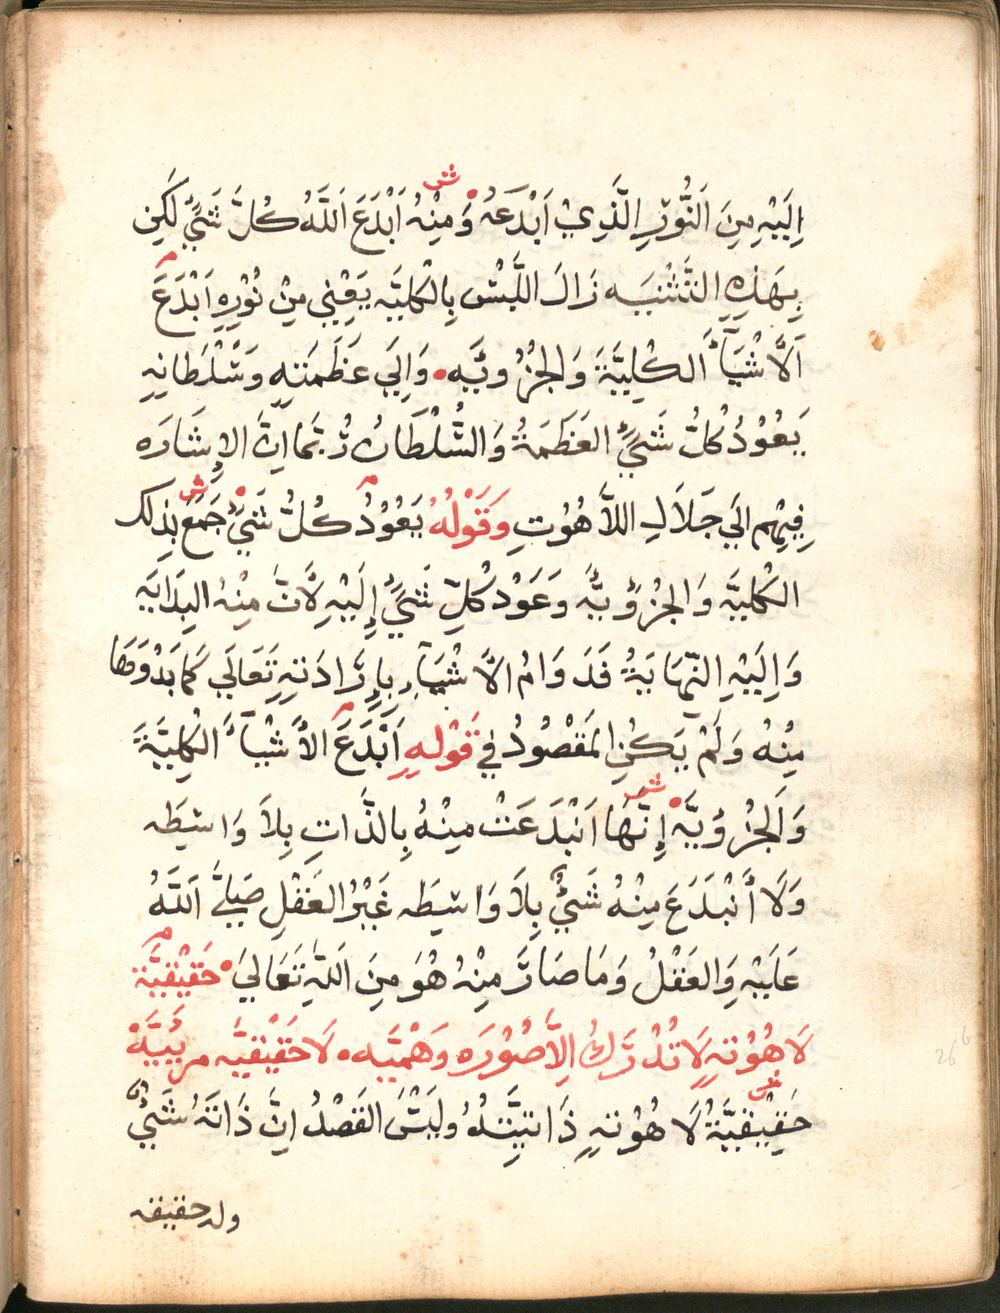 ش
اِلَيْهِ مِنَ اَلنُّوْرِ الَّذِيْ اَبْدَعَهُ وَمِنْهُ اَبْدَعَ اَللَّهُ كُلَّ شَيْءٍ لَكِن
بِهَذِهِ التَّثْنِيَه زَالَ اللَّبْسُ بِالْكُلِيَّه يَعْنِي مِنْ نُوْرِهِ اَبْدَعَ
اَلاَّشْيَآءَ الكُلِيَّةَ وَالجُزْوِيَّه ۰ وَاِلَي عَظَمَتِهِ وَسُّلْطَانِهِ
يَعُوْدُ كُلُّ شَيْءٍ العَظَمَةُ وَالسُّلْطَانُ رُبَّمَا اِنَّ الاِشَارَه
فِيْهِم الَي جَلاَلِ اللاَّهُوْتِ وَقَوْلُهُ يَعُوْدُ كُلُّ شَيْءٍ ش جَمَعَ بِذلك
الكُلِيَّه وَالجُزْوِيَّه وَعَوْد كُلِّ شَيْءٍ اِلَيْهِ لاَنَّ مِنْهُ البِدَايَه
وَاِلَيْهِ النِّهَايَةُ فَدَوَامُ الاَّشْيَآءِ بِاِرَّادَتِهِ تَعَالَي كَمَا بَدْوهَا
مِنْهُ وَلَمْ يَكُنِ المَقْصُودُ فِي قَوْلِهِ اَبْدَعَ الاَشْيَآءَ الكُلِيَّةَ
وَالجُزْوِيَّه ش إِنَّهَا اَنْبَدَعَتْ مِنْهُ بِالذَّاتِ بِلاَ وَاسِطَه
وَلاَ أَنْبَدَعَ مِنْهُ شَيْءٌ بِلاَ وَاسِطَه غَيْرُ العَقْلِ صَلَّي اَللَّهُ
عَلَيْهِ وَالعَقْلُ وَمَا صَارَّ مِنْهُ هُوَ مِنَ اَللهِ تَعَالَي ۰ حَقِيْقِيَّة
لاَهُوْتِهِ لاَ تُدْرَّكُ اِلاَّ صُوْرَه وَهْمِيَّه ۰ لاَ حَقِيْقِيَّه مَرْيِيَّةْ
ش
حَقِيْقِيَّةُ لاَهُوْتِهِ ذَاتِيَّتُهُ وليْسَ القَصْدُ اِنَّ ذَاتَهُ شَيْءٌ
وله حقيقه
26 b